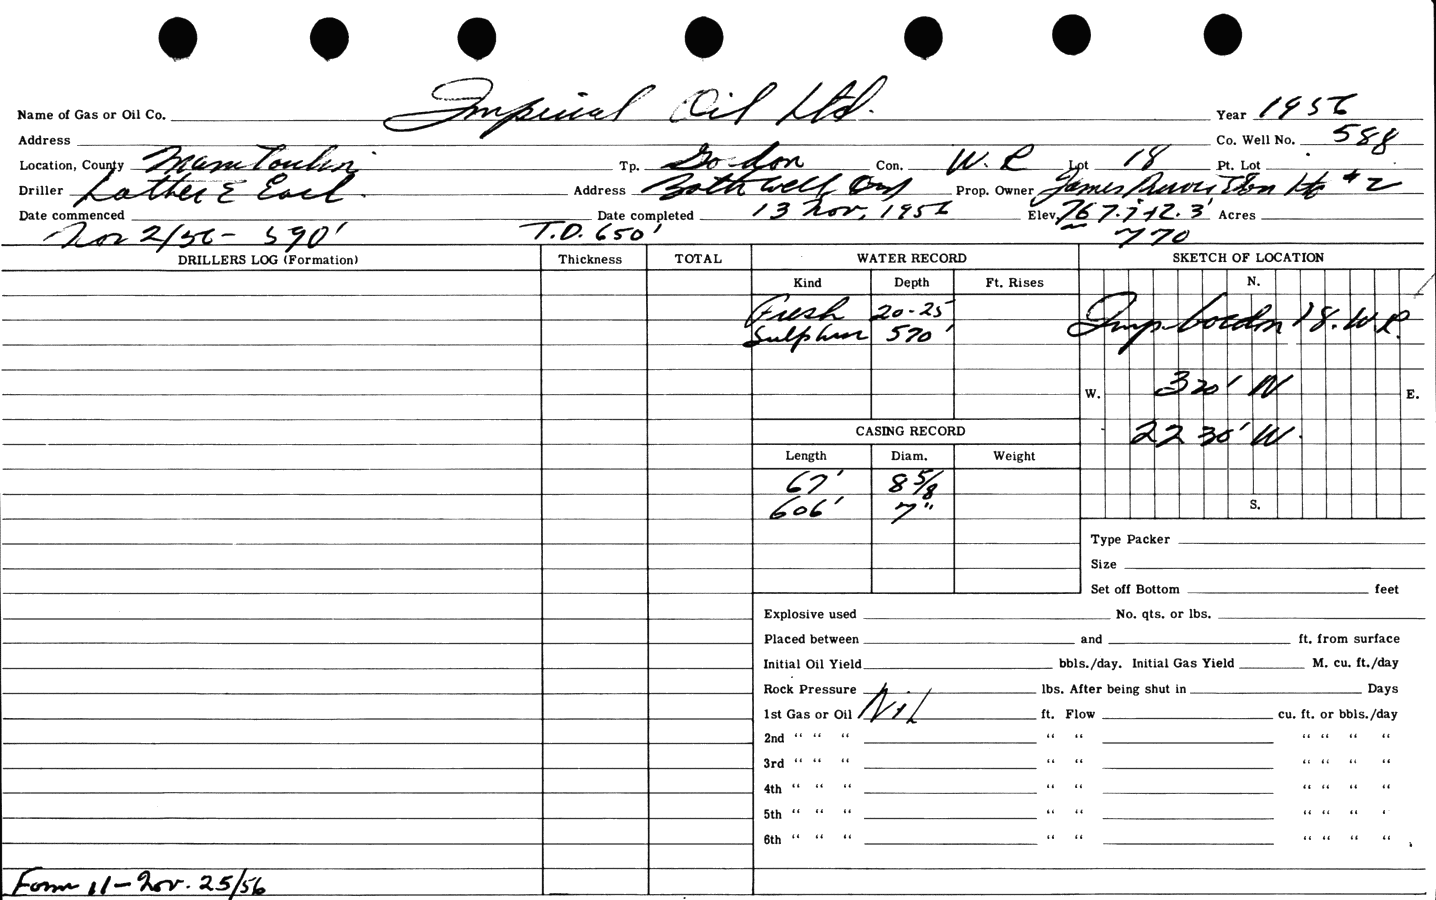 Name of Gas or Oil Co. Imperial Oil Ltd. Year 1956
Address Co. Well No. 588
Location, County Manitoulin Tp. Gordon Con. W. R Lot 18 Pt. Lot
Driller Lather & Earl Address Bothwell Ont Prop. Owner James #2
Date commenced Date completed 13 Nov, 1956 Elev. 767.7+2.3' Acres
Nov 2/56 - 590' T.D. 650' 770
DRILLERS LOG (Formation) Thickness TOTAL WATER RECORD SKETCH OF LOCATION
Kind Depth Ft. Rises N.
Fresh 20-25
Sulphur 570' Imp. Gordon 18. W.R.
W. 320' N E.
2230' W.
CASING RECORD
Length Diam. Weight
67' 8 5/8
606' 7" S.
Type Packer
Size
Set off Bottom feet
Explosive used No. qts. or lbs.
Placed between and ft. from surface
Initial Oil Yield bbls./day. Initial Gas Yield M. cu. ft./day
Rock Pressure lbs. After being shut in Days
1st Gas or Oil Nil ft. Flow cu. ft. or bbls./day
2nd " " " " " " " " "
3rd " " " " " " " " "
4th " " " " " " " " "
5th " " " " " " " " '
6th " " " " " " " " "
Form 11 - Nov. 25/56